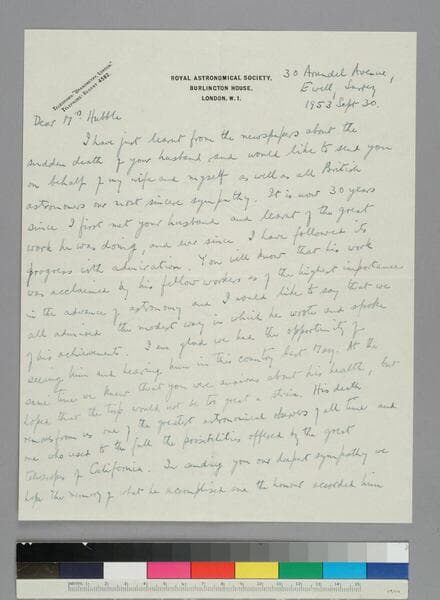 TELEGRAMS, "
TELEPHONE: REGENT 4582.
ROYAL ASTRONOMICAL SOCIETY,
BURLINGTON HOUSE,
LONDON, W.1.
30 Arundel Avenue,
Ewell, Surrey
1953 Sept 30.
Dear Mrs Hubble
I have just learnt from the newspapers about the
sudden death of your husband and would like to send you
on behalf of my wife and myself as well as all British
astronomers our most sincere sympathy. It is now 30 years
since I first met your husband and learnt of the great
work he was doing, and ever since I have followed its
progress with admiration. You will know that his work
was acclaimed by his fellow workers as of the highest importance
in the advance of astronomy and I would like to say that we
all admired the modest way in which he wrote and spoke
of his achievements. I am glad we had the opportunity of
seeing him and hearing him in this country last May. At the
same time we knew that you were anxious about his health, but
hoped that the trip would not be too great a strain. His death
removes from us one of the greatest astronomical observers of all time and
one who used to the full the possibilities offered by the great
telescopes of California. In sending you our deepest sympathy we
hope the memory of what he accomplished and the honour accorded him